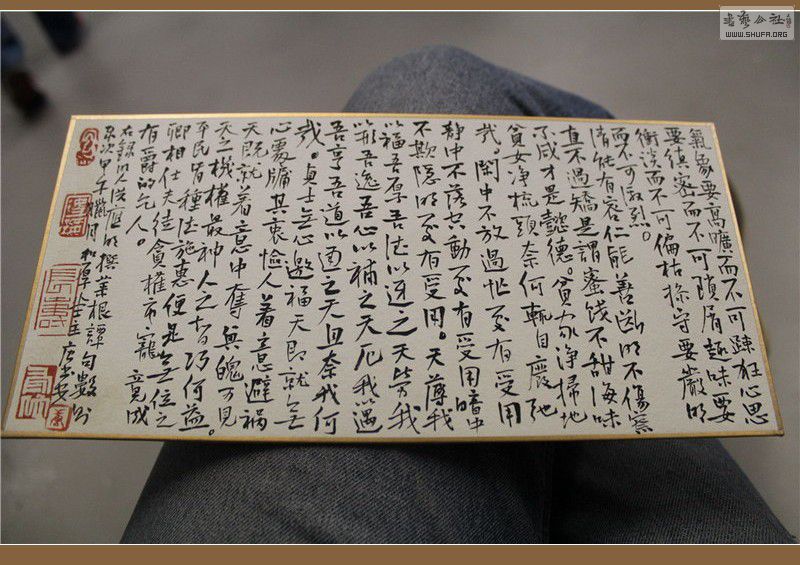 氣象要高曠而不可疎狂心思
要縝密而不可瑣屑趣味要
衝淡而不可偏枯操守要嚴明
而不可激烈。
清能有容仁能善斷明不傷察
直不過矯是謂蜜餞不甜海味
不咸才是懿德。貧家淨掃地
貧女淨梳頭奈何輒自廢弛
哉。閑中不放過忙處有受用
靜中不落空動處有受用暗中
不欺隱明處有受用。天薄我
以福吾厚吾德以迓之天勞我
以形吾逸吾心以補之天厄我以遇
吾亨吾道以通之天且奈我何
哉。貞士無心邀福天即就無
心處牖其衷憸人着意避禍
天既就着意中奪其魄可見
天之機權最神人之智巧何益。
平民肯種德施惠便是無位之
卿相仕夫徒貪權市寵竟成
有爵的乞人。
右錄明人洪應明撰菜根譚句數則
歲次甲午臘月
長壽
書藝公社
WWW.SHUFA.ORG